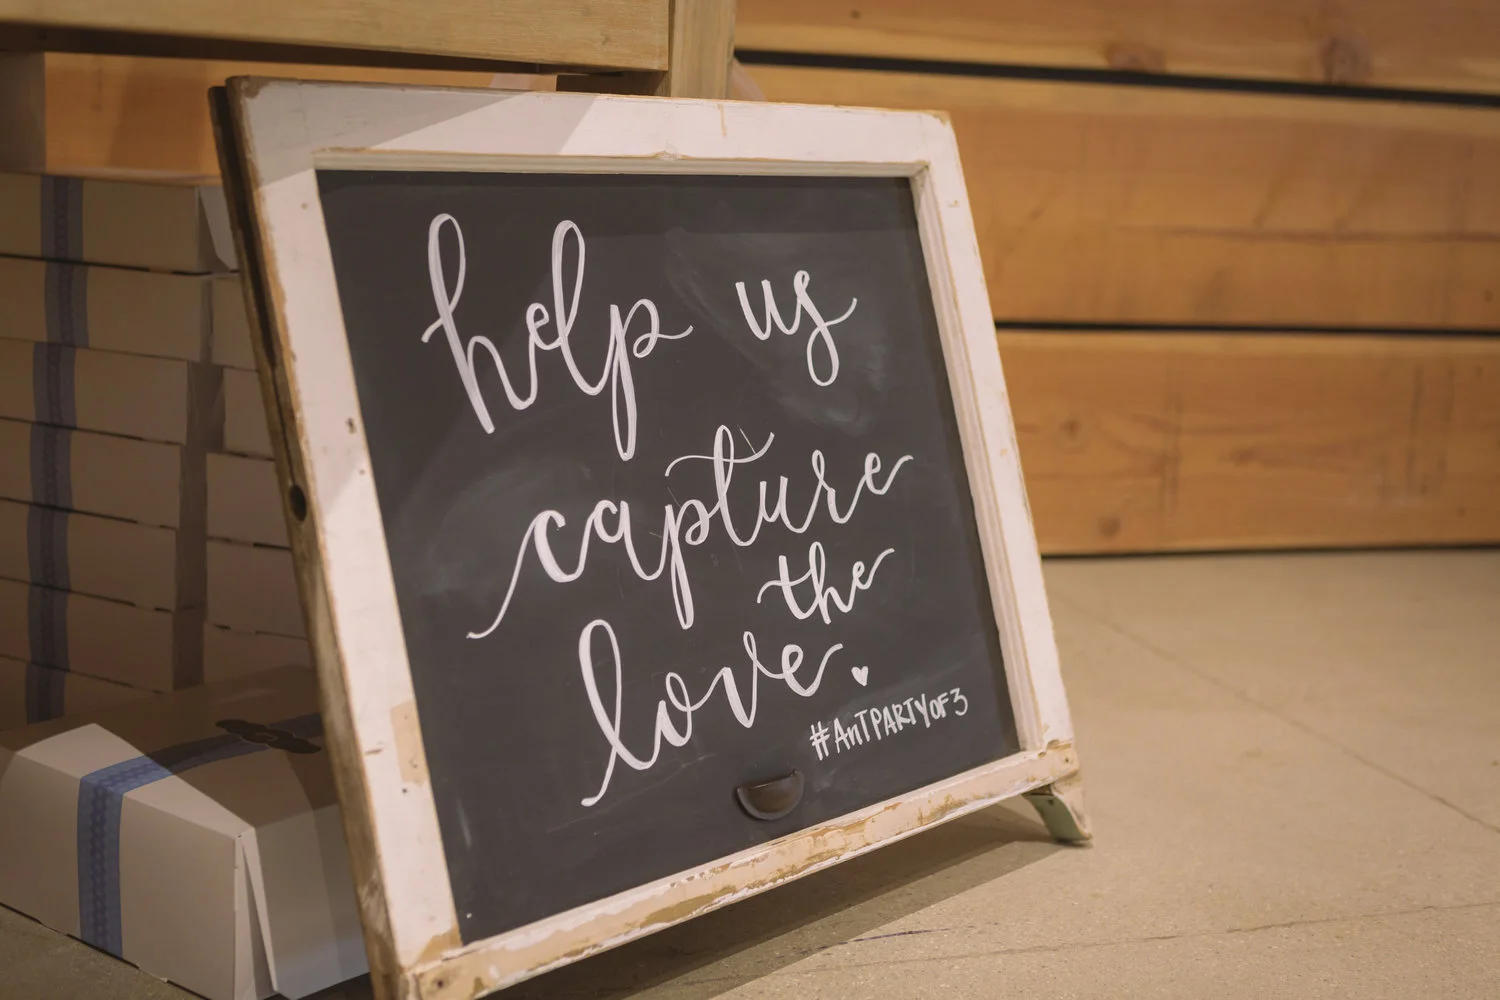 help us
capture
the
love.
#AnTPARTYOF3